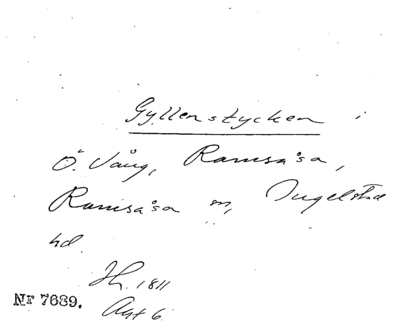 Gyllenstycken i
Ö. Vång, Ramsåsa,
Ramsåsa sn, Ingelstad
hd.
Jh. 1811
Akt 6.
Nr 7689.